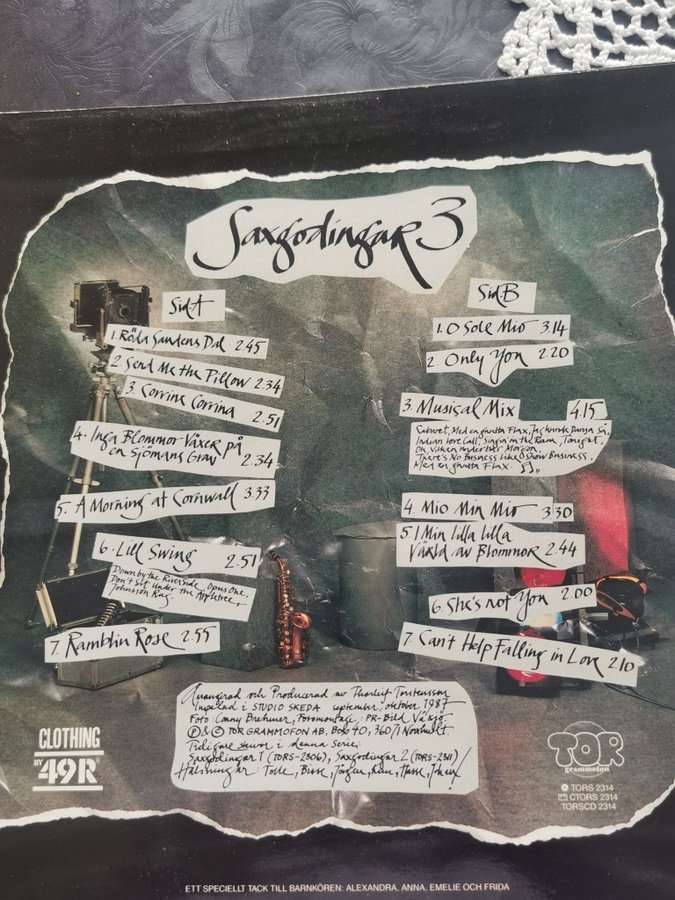 Saxgodingar 3
Sid A
1. Röda Sandens Dal 2.45
2. Send Me the Pillow 2.34
3. Corrine Corrina 2.51
4. Inga Blommor Växer på
en Sjömans Grav 2.34
5. A Morning at Cornwall 3.33
6. Lill Swing 2.51
Down by the Riverside, Opus One,
Don't Sit Under the Appletree,
Johnson Rag.
7. Ramblin Rose 2.55
Sid B
1. O Sole Mio 3.14
2. Only You 2.20
3. Musical Mix 4.15
Cabaret, Med en gnutta Flax, Jag kunde Dansa Så,
Indian Love Call, Singin' in the Rain, Tonight,
Oh, Vilken Underbar Morgon,
There's No Business Like Show Business,
Med en gnutta Flax.
4. Mio Min Mio 3.30
5. I Min lilla lilla
Värld av Blommor 2.44
6. She's not You 2.00
7. Can't Help Falling in Love 2.10
Arrangerad och Producerad av Thorleif Torstensson
Inspelad i STUDIO SKEDA september, oktober 1987
Foto: Conny Brehmer, Fotomontage: PR-Bild Växjö
Ⓟ & © TOR GRAMMOFON AB, Box 40, 360 71 Norrhult
Tidigare skivor i denna serie:
Saxgodingar 1 (TORS-2306), Saxgodingar 2 (TORS-2311)
Hälsningar: Totte, Bosse, Jörgen, Hasse,
CLOTHING
BY 49R
TOR
grammofon
TORS 2314
CTORS 2314
TORSCD 2314
ETT SPECIELLT TACK TILL BARNKÖREN: ALEXANDRA, ANNA, EMELIE OCH FRIDA